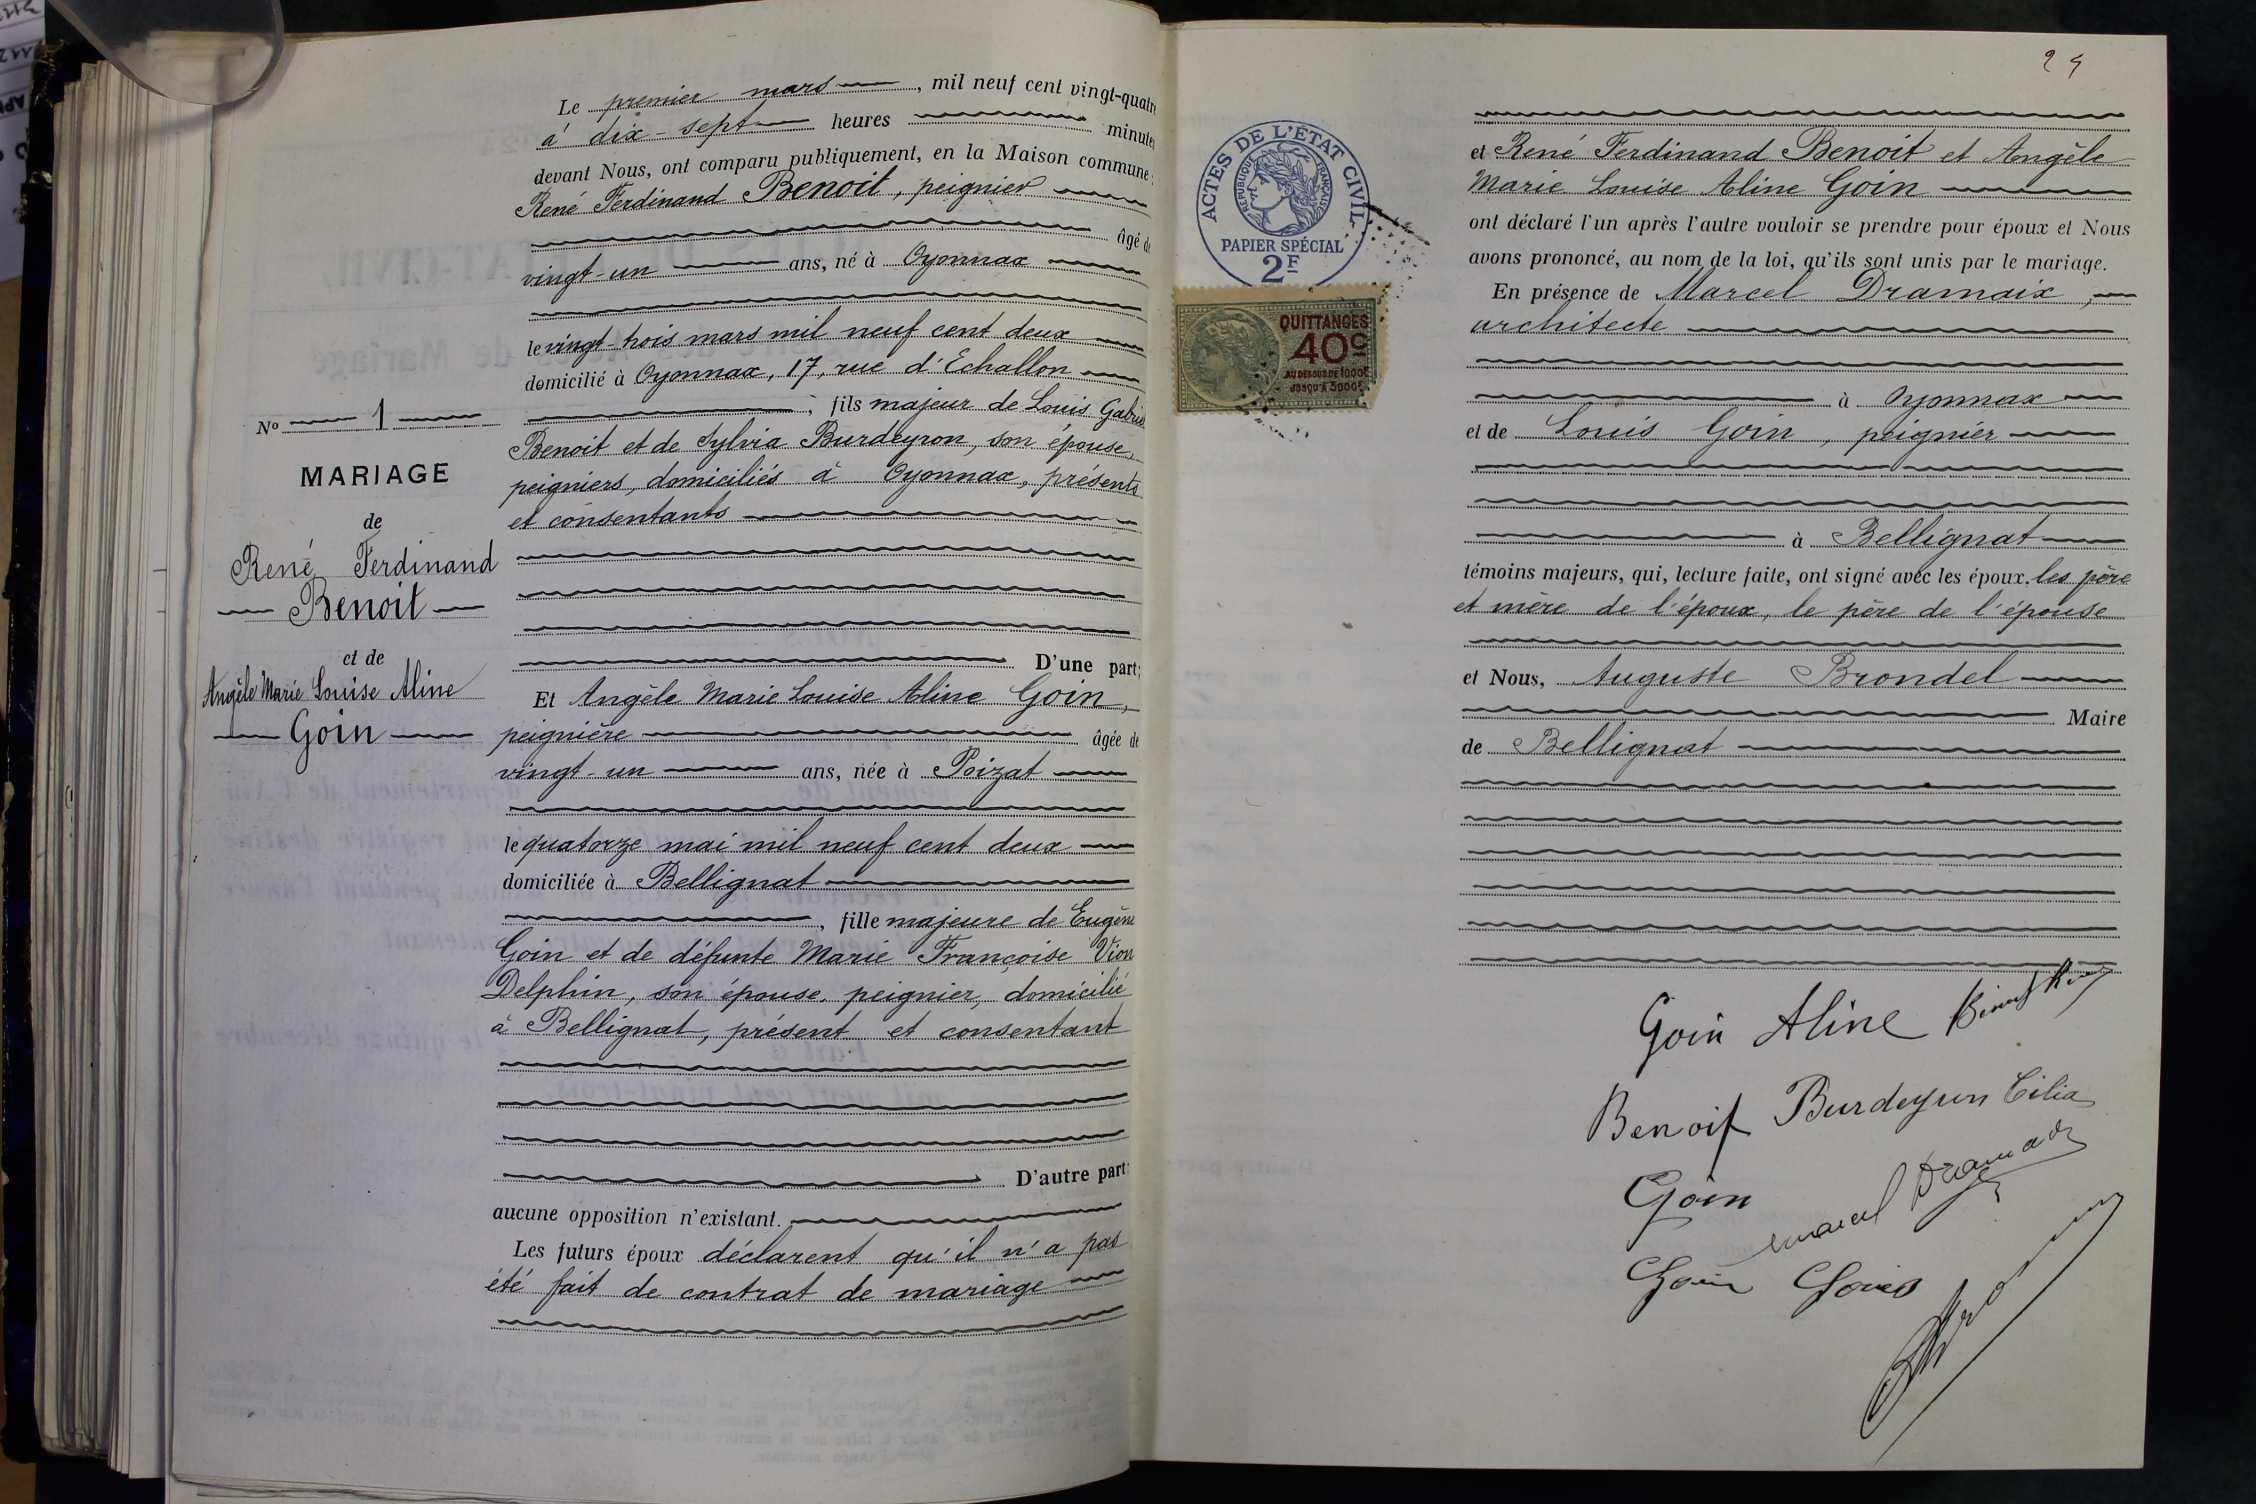 Le premier mars, mil neuf cent vingt-quatre
à dix-sept heures minutes
devant Nous, ont comparu publiquement, en la Maison commune :
René Ferdinand Benoit, peignier
âgé de
vingt-un ans, né à Oyonnax
le vingt-trois mars mil neuf cent deux
domicilié à Oyonnax, 17, rue d'Echallon
, fils majeur de Louis Gabriel
Benoit et de Sylvia Burdeyron, son épouse,
peigniers, domiciliés à Oyonnax, présents
et consentants
D'une part;
Et Angèle Marie Louise Aline Goin,
peignière âgée de
vingt-un ans, née à Poizat
le quatorze mai mil neuf cent deux
domiciliée à Bellignat
, fille majeure de Eugène
Goin et de défunte Marie Françoise Vion
Delphin, son épouse, peignier, domicilié
à Bellignat, présent et consentant
D'autre part;
aucune opposition n'existant.
Les futurs époux déclarent qu'il n'a pas
été fait de contrat de mariage
No 1
MARIAGE
de
René Ferdinand
Benoit
et de
Angèle Marie Louise Aline
Goin
ACTES DE L'ÉTAT CIVIL
RÉPUBLIQUE FRANÇAISE
PAPIER SPÉCIAL
2F
QUITTANCES
40c
AU DESSUS DE 1000F
JUSQU'À 3000F
et René Ferdinand Benoit et Angèle
Marie Louise Aline Goin
ont déclaré l'un après l'autre vouloir se prendre pour époux et Nous
avons prononcé, au nom de la loi, qu'ils sont unis par le mariage.
En présence de Marcel Dramaix,
architecte
à Oyonnax
et de Louis Goin, peignier
à Bellignat
témoins majeurs, qui, lecture faite, ont signé avec les époux, les père
et mère de l'époux, le père de l'épouse
et Nous, Auguste Brondel
Maire
de Bellignat
Goin Aline
Benoit Burdeyron Cilia
Goin
Marcel Dramaix
Goin Louis